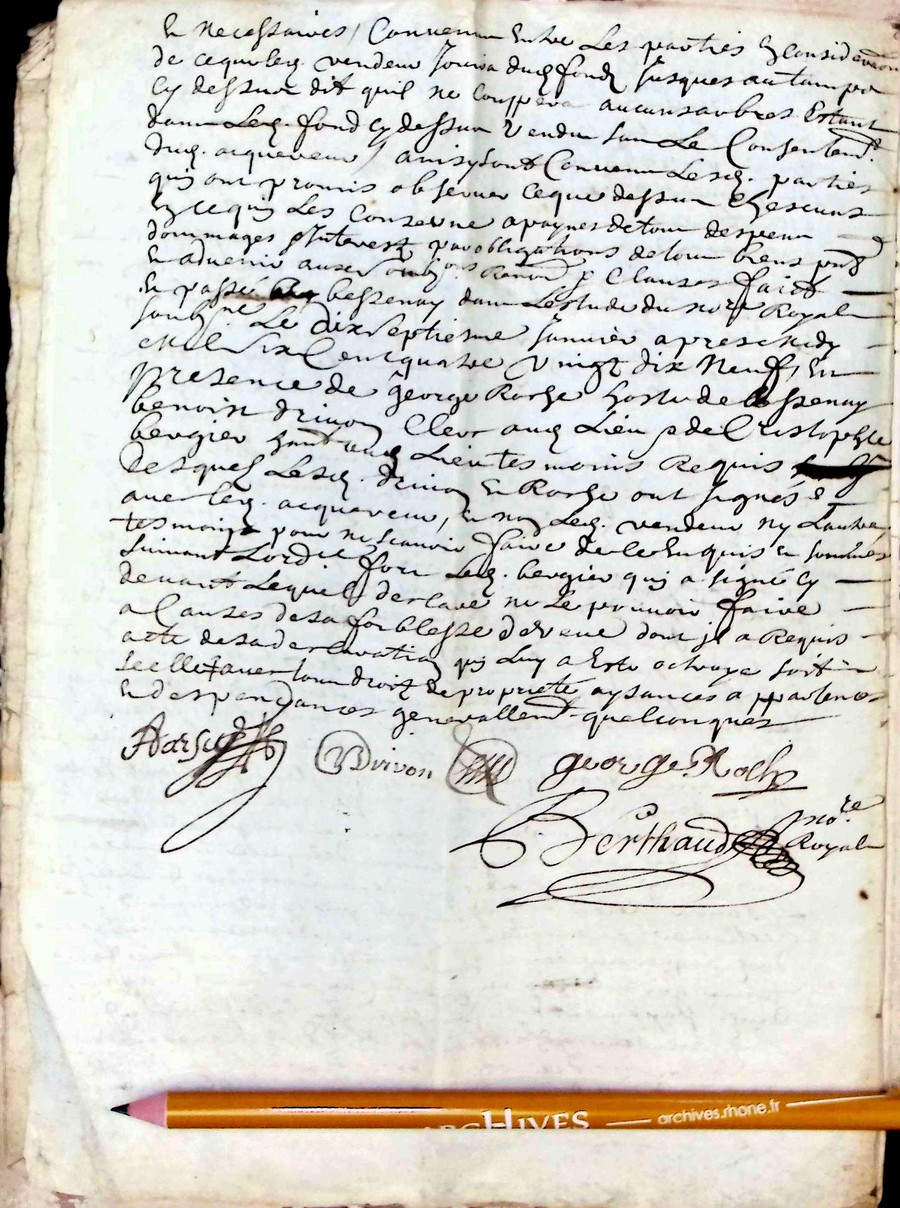 Et necessaires / Convenu Entre Les parties En consideration
de cequeledt. vendeur Jouira dud. fond Jusques au temps
Cy dessus dit quil ne Couppera aucuns arbres Estant
dans Led. fond cy dessus vendu sans Le Consentemt.
dud. acquereur / ainsy sont Convenu Lesd. parties
quy ont promis observer ceque dessus Chescuns
En ce quy Les Conserne a paynes de tous despens
dommages Interest par obligations de tous biens pnts
Et advenir aux Clauses faict
Et passé bessenay dans Lestude du nore Royal
soubsne. Le dix septiesme Janvier apres midy
Mil six Cent quatre vingt dix Neuf, En
presence de george Roche hoste de bessenay
benoist drivon Clerc aud Lieu & de Cristophle
bergier aud Lieu tesmoins Requis
desquels Lesd. drivon Et Roche ont signés
avec led. acquereur, Et non Led. vendeur ny Lautre
tesmoins pour ne scavoir faire de ce Enquis Et sommés
suivant Lordce fors Led. bergier quy a signé cy
devant Lequel desclare ne Le pouvoir faire
a Causes de sa foiblesse de veue dont jl a Requis
acte de sa desclaration quy Luy a Esté octroyé soit
seellé avec tous droit de proprieté aysances appartences
Et despendances generallemt. quelconques
BDrivon
george Roche
Berthaud nore
Royal
ARCHIVES
archives.rhone.fr